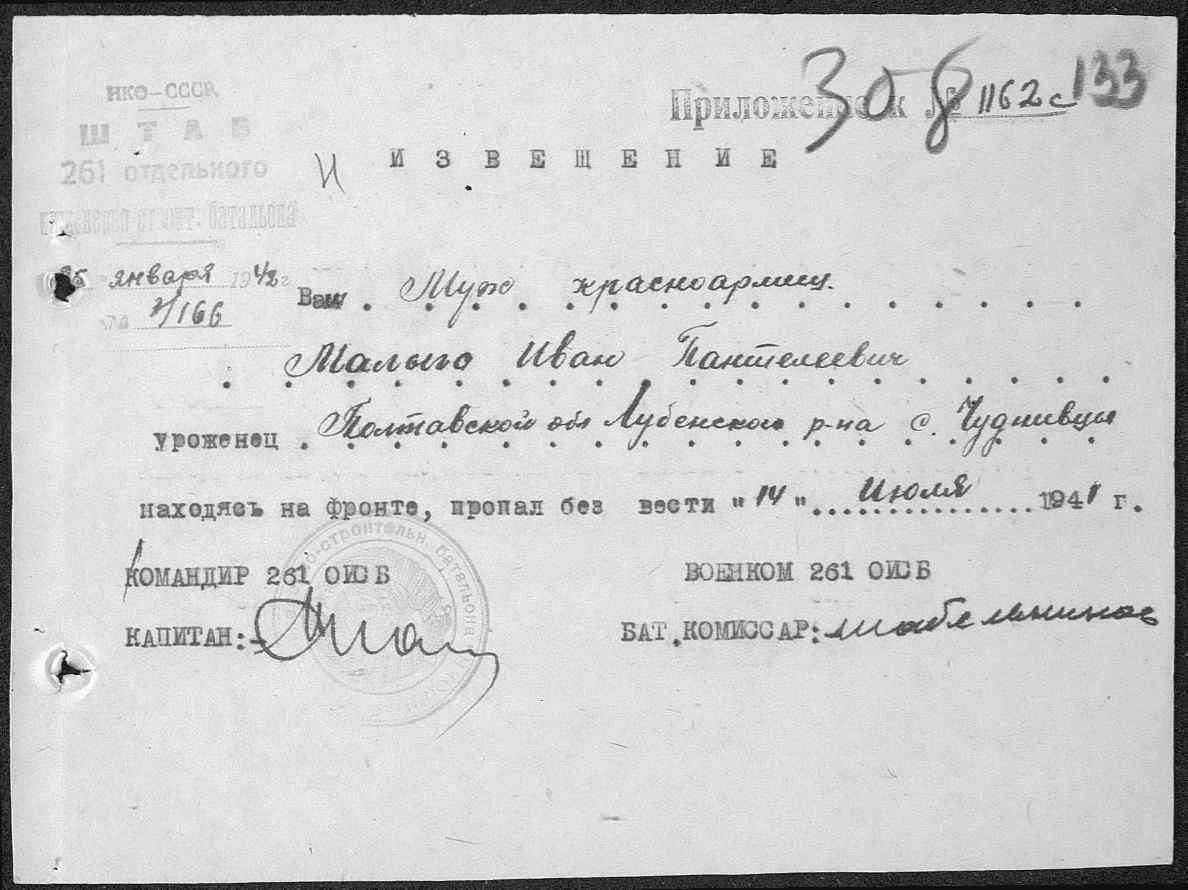 НКО-СССР
ШТАБ
261 отдельного
батальона
Приложение к № 1162с
30 8
133
И ИЗВЕЩЕНИЕ
января 1942 г.
№ 2/166
Ваш Муж красноармеец.
Малыго Иван Пантелеевич
уроженец Полтавской обл Лубенского р-на с. Чуднивцы
находясь на фронте, пропал без вести "14" Июля 1941 г.
КОМАНДИР 261 ОИСБ
ВОЕНКОМ 261 ОИСБ
КАПИТАН:
БАТ.КОМИССАР:
-строительн. батальона